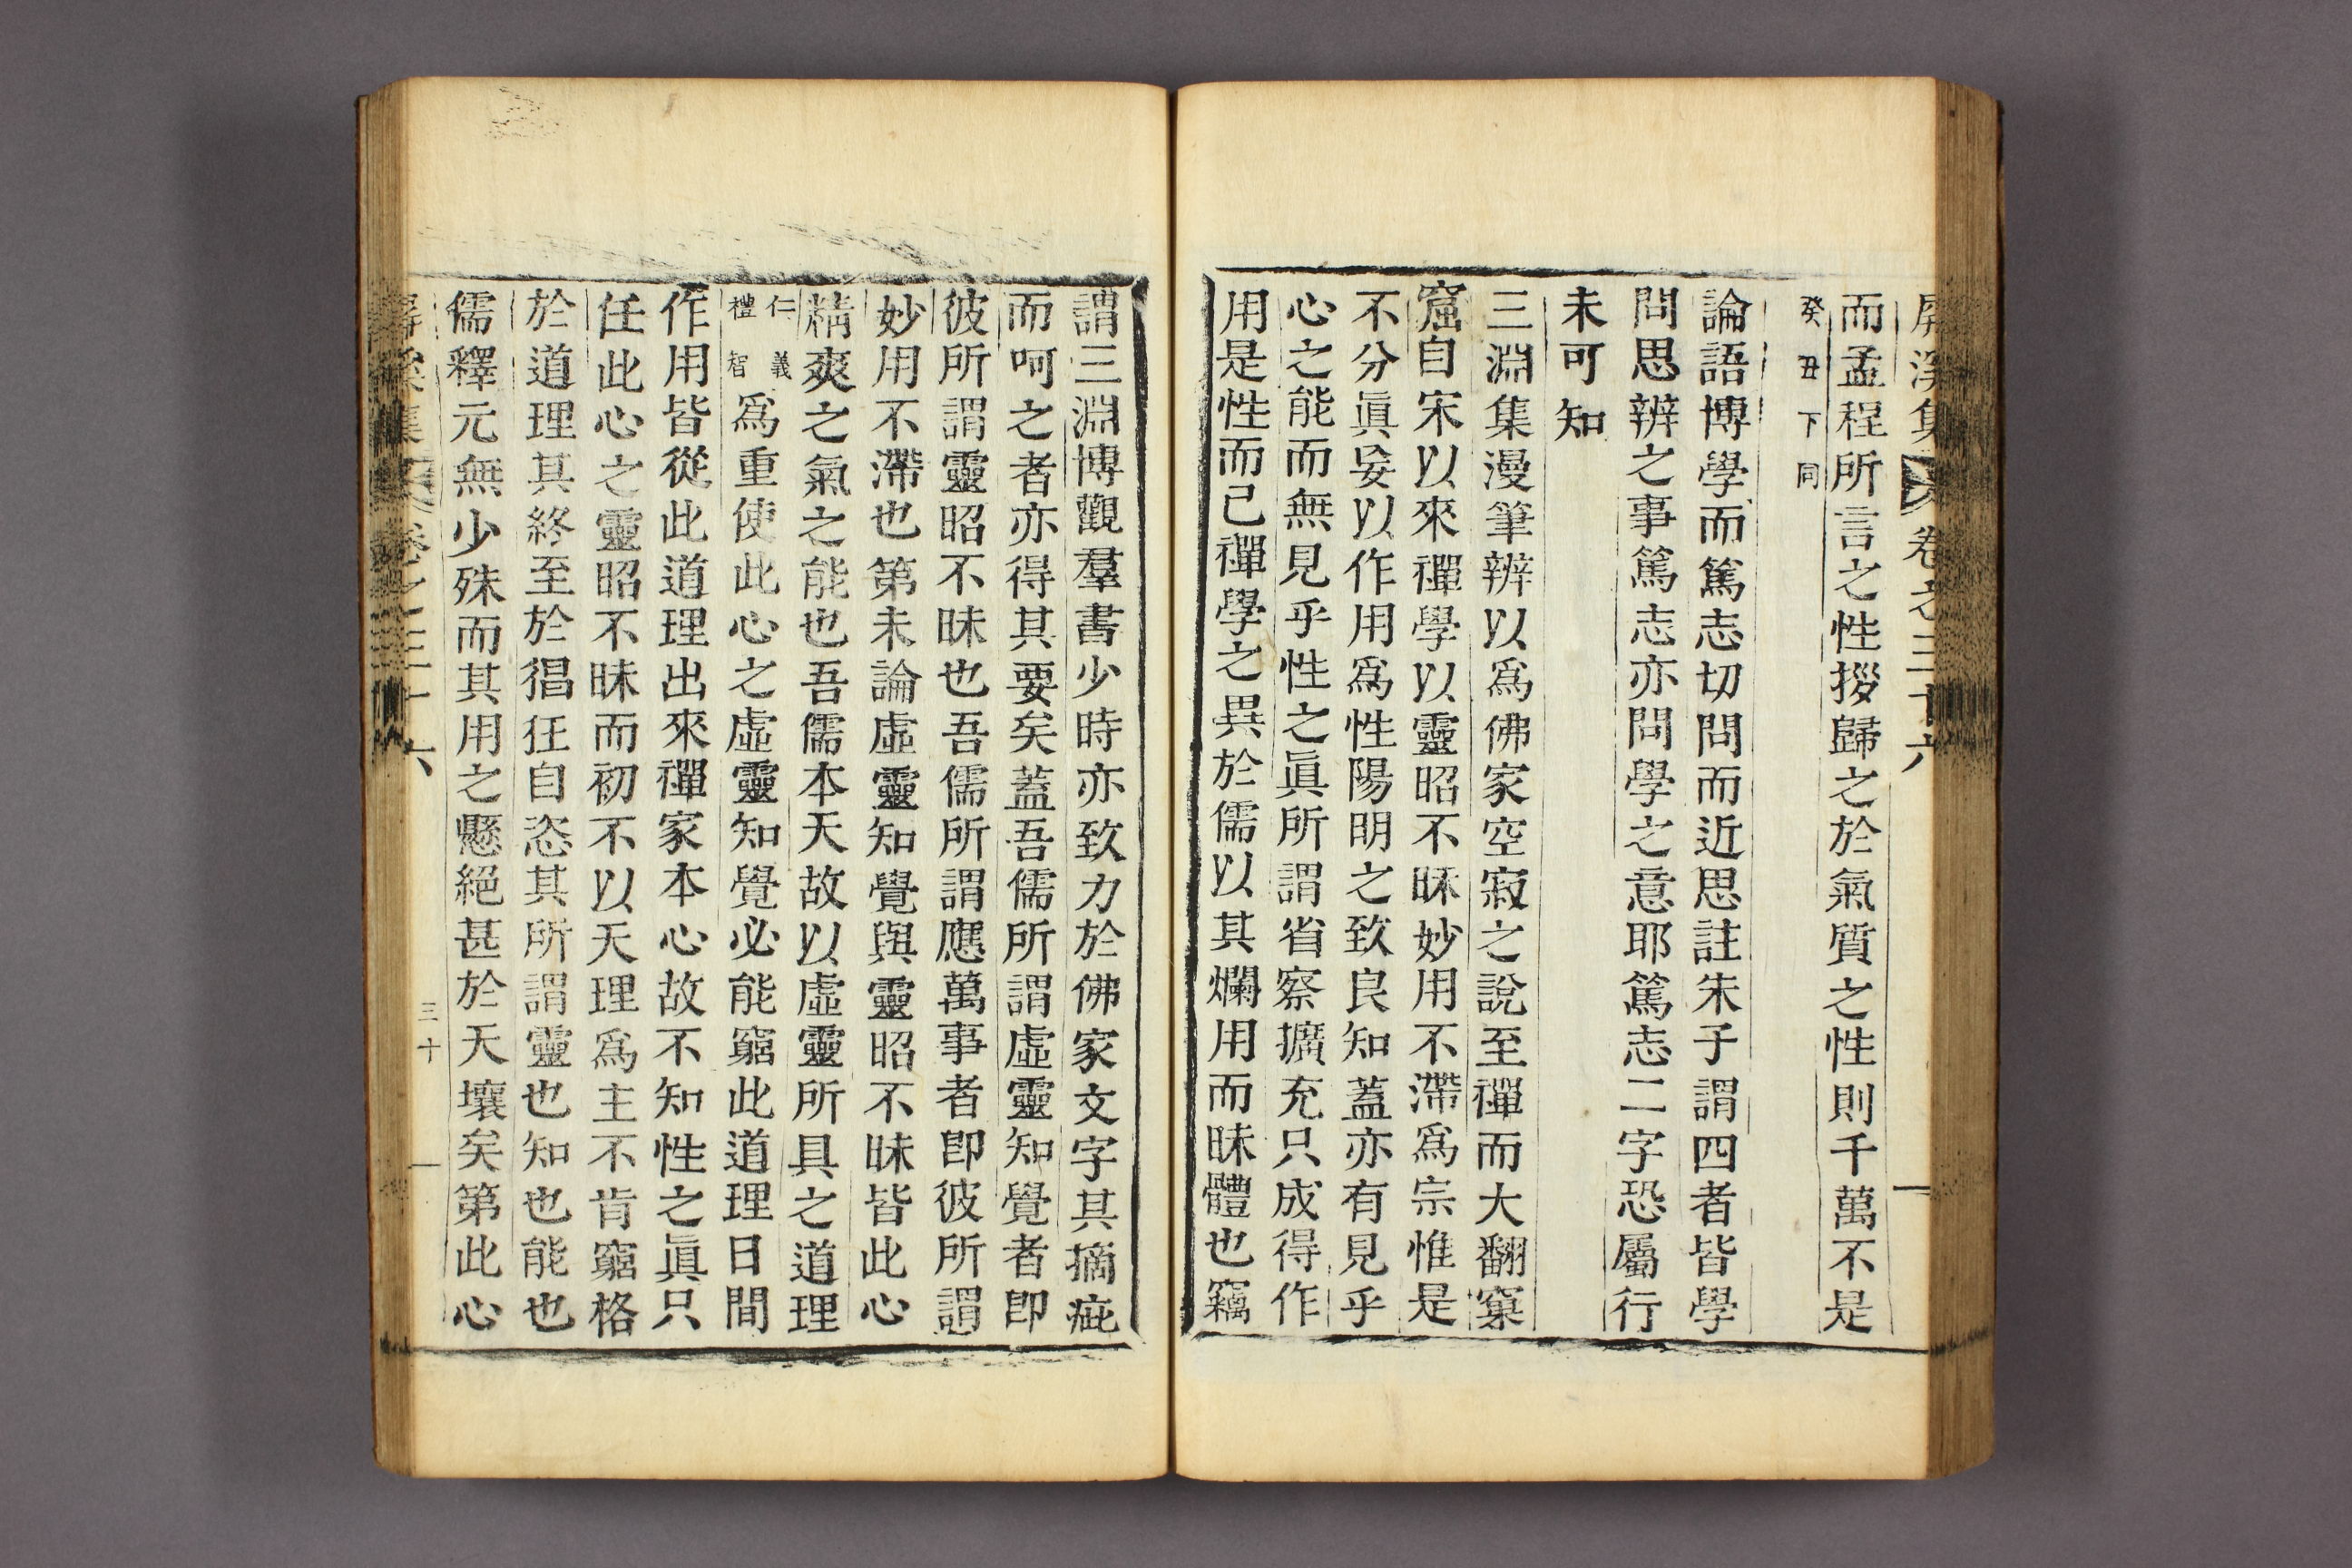 屛溪集 卷之三十六
而孟程所言之性撥歸之於氣質之性則千萬不是
癸丑下同
論語博學而篤志切問而近思註朱子謂四者皆學
問思辨之事篤志亦問學之意耶篤志二字恐屬行
未可知
三淵集漫筆辨以爲佛家空寂之說至禪而大翻窠
窟自宋以來禪學以靈昭不昧妙用不滯爲宗惟是
不分眞妄以作用爲性陽明之致良知蓋亦有見乎
心之能而無見乎性之眞所謂省察擴充只成得作
用是性而已禪學之異於儒以其爛用而昧體也竊
謂三淵博觀羣書少時亦致力於佛家文字其摘疵
而呵之者亦得其要矣蓋吾儒所謂虛靈知覺者卽
彼所謂靈昭不昧也吾儒所謂應萬事者卽彼所謂
妙用不滯也第未論虛靈知覺與靈昭不昧皆此心
精爽之氣之能也吾儒本天故以虛靈所具之道理
仁義
禮智
爲重使此心之虛靈知覺必能窮此道理日間
作用皆從此道理出來禪家本心故不知性之眞只
任此心之靈昭不昧而初不以天理爲主不肯窮格
於道理其終至於猖狂自恣其所謂靈也知也能也
儒釋元無少殊而其用之懸絕甚於天壤矣第此心
屛溪集 卷之三十六
三十